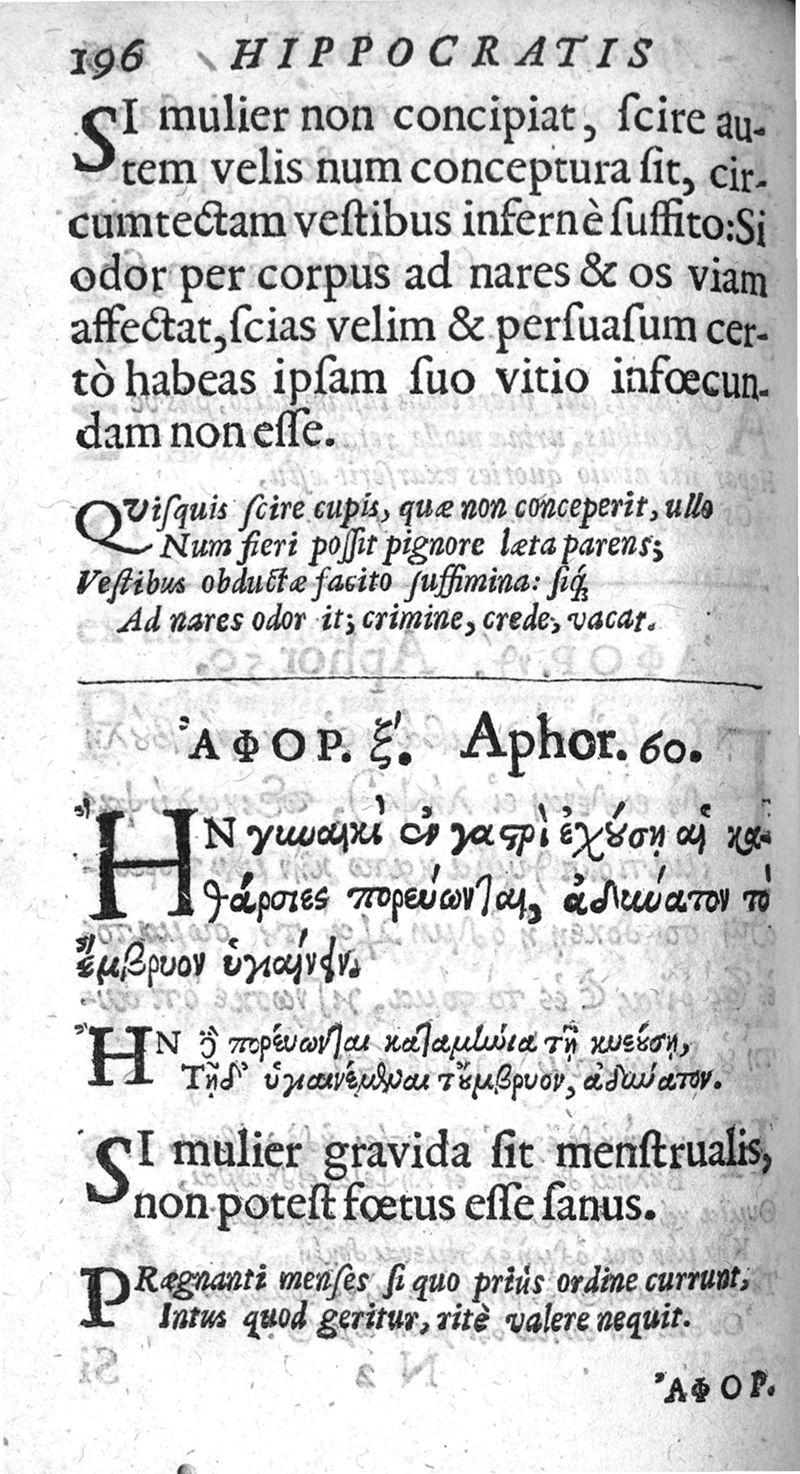 196 HIPPOCRATIS
SI mulier non concipiat, ſcire au-
tem velis num conceptura ſit, cir-
cumtectam veſtibus infernè ſuffito: Si
odor per corpus ad nares & os viam
affectat, ſcias velim & perſuaſum cer-
tò habeas ipſam ſuo vitio infœcun-
dam non eſſe.
QViſquis ſcire cupis, quæ non conceperit, ullo
Num fieri poſſit pignore læta parens;
Veſtibus obductæ facito ſuffimina: ſiq́;
Ad nares odor it; crimine, crede, vacat.
ἈΦΟΡ. ξ'. Aphor. 60.
ἪΝ γυναικὶ ἐν γαστρὶ ἐχούσῃ αἱ κα-
θάρσιες πορεύωνται, ἀδύνατον τὸ
ἔμβρυον ὑγιαίνειν.
ἪΝ δὲ πορεύωνται καταμήνια τῇ κυεούσῃ,
Τῇδ' ὑγιαινέμεναι τοὔμβρυον, ἀδύνατον.
SI mulier gravida ſit menſtrualis,
non poteſt fœtus eſſe ſanus.
PRægnanti menſes ſi quo priùs ordine currunt,
Intus quod geritur, ritè valere nequit.
ἈΦΟΡ.